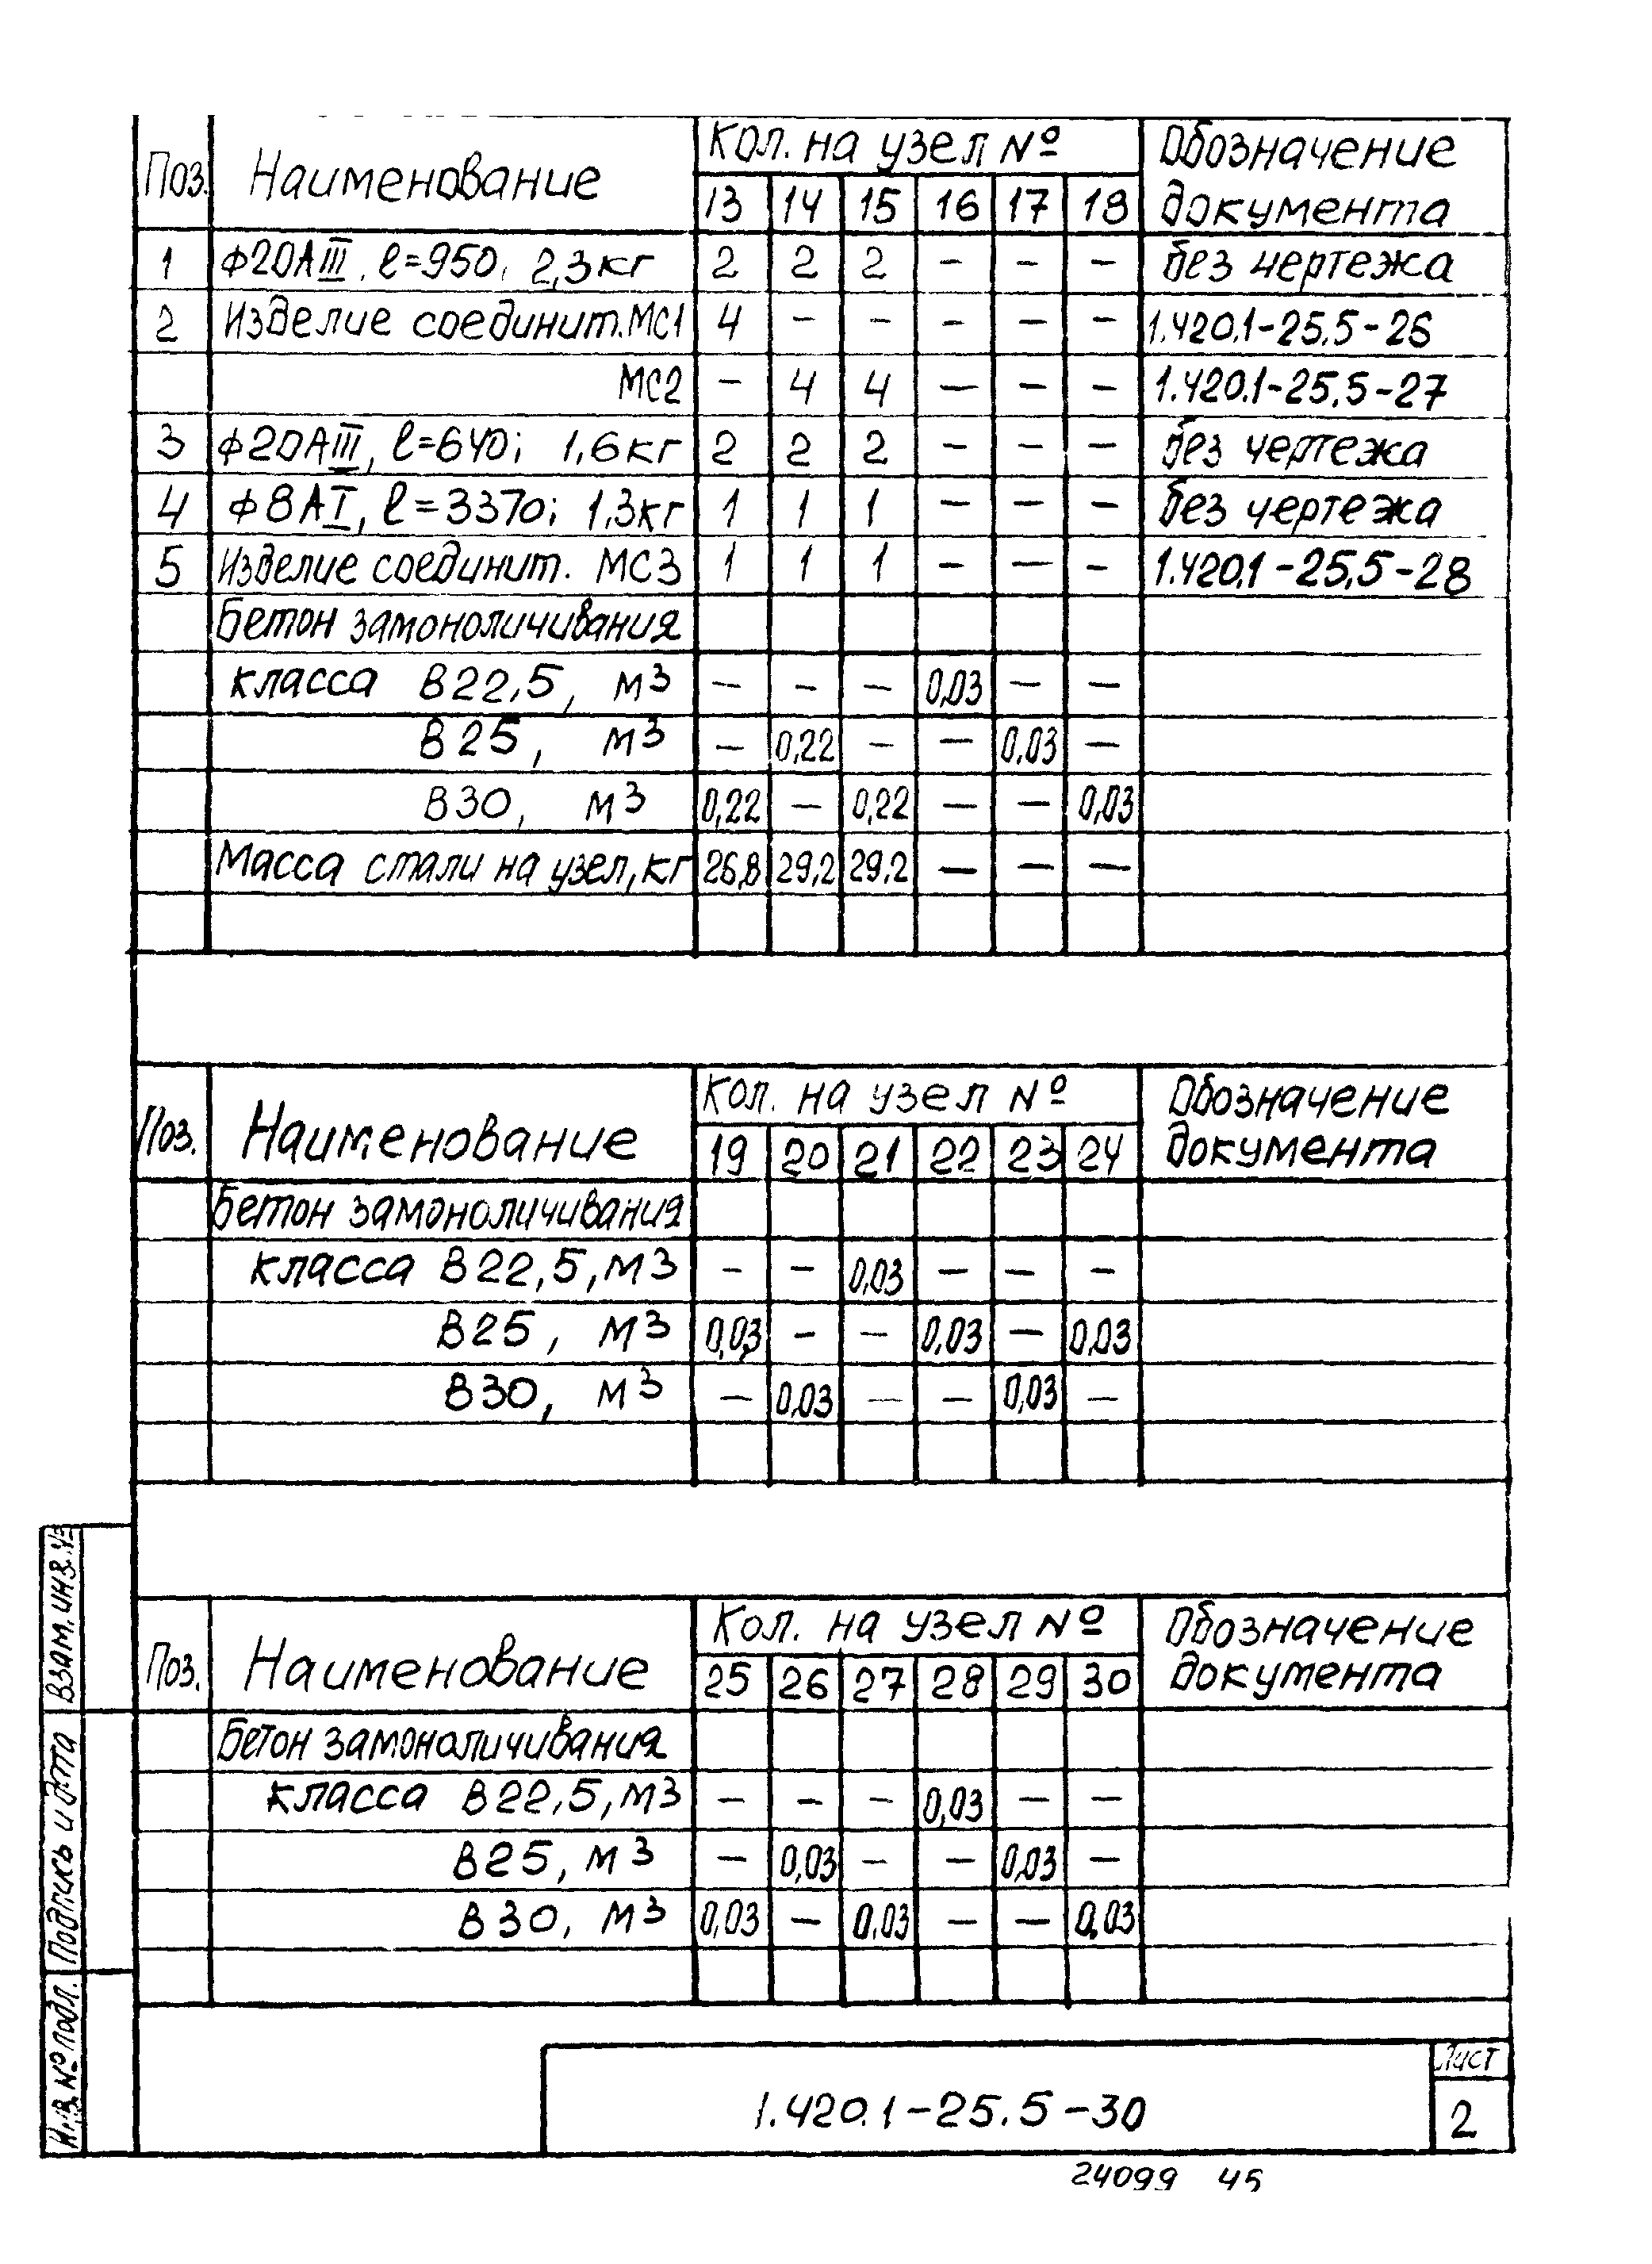 Поз. Наименование Кол. на узел № Обозначение документа
13 14 15 16 17 18
1 ф20АIII, ℓ=950, 2,3кг 2 2 2 — — — без чертежа
2 Изделие соединит. МС1 4 — — — — — 1.420.1-25.5-26
МС2 — 4 4 — — — 1.420.1-25.5-27
3 ф20АIII, ℓ=640; 1,6кг 2 2 2 — — — без чертежа
4 ф8АI, ℓ=3370; 1,3кг 1 1 1 — — — без чертежа
5 Изделие соединит. МС3 1 1 1 — — — 1.420.1-25.5-28
Бетон замоноличивания
класса В22,5, м3 — — — 0,03 — —
В25, м3 — 0,22 — — 0,03 —
В30, м3 0,22 — 0,22 — — 0,03
Масса стали на узел, кг 26,8 29,2 29,2 — — —
Поз. Наименование Кол. на узел № Обозначение документа
19 20 21 22 23 24
Бетон замоноличивания
класса В22,5, м3 — — 0,03 — — —
В25, м3 0,03 — — 0,03 — 0,03
В30, м3 — 0,03 — — 0,03 —
Поз. Наименование Кол. на узел № Обозначение документа
25 26 27 28 29 30
Бетон замоноличивания
класса В22,5, м3 — — — 0,03 — —
В25, м3 — 0,03 — — 0,03 —
В30, м3 0,03 — 0,03 — — 0,03
Взам. инв. №
Подпись и дата
Инв. № подл.
1.420.1-25.5-30
Лист
2
24099 45